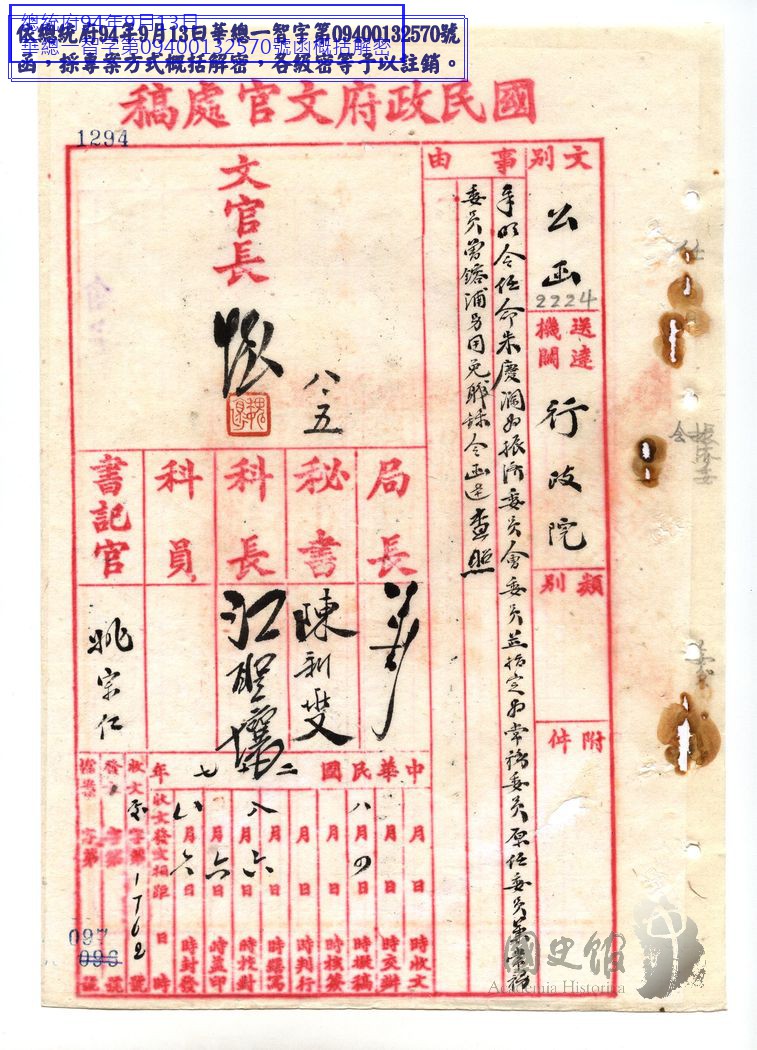 總統府94年9月13日
華總一智字第09400132570號函概括解密
依總統府94年9月13日華總一智字第09400132570號
函，採專案方式概括解密，各級密等予以註銷。
國民政府文官處稿
1294
文別
公函
2224
送達機關
行政院
類別
附件
事由
奉明令任命朱慶瀾為振濟委員會委員並指定為常務委員原任委員兼常務
委員曾鎔浦另用免職錄令函達查照
文官長
魏
八、五
局長
秘書
陳新燮
科長
科員
書記官
姚宗仁
中華民國二七年
月日時收文
月日時交辦
八月四日時擬稿
月日時核簽
月日時判行
月日時繕寫
八月六日時校對
月六日時蓋印
八月六日時封發
收文發文相距日時
收文字第1762號
發文字第號
檔案字第號
097
096
振濟委
會
國史館
Academia Historica